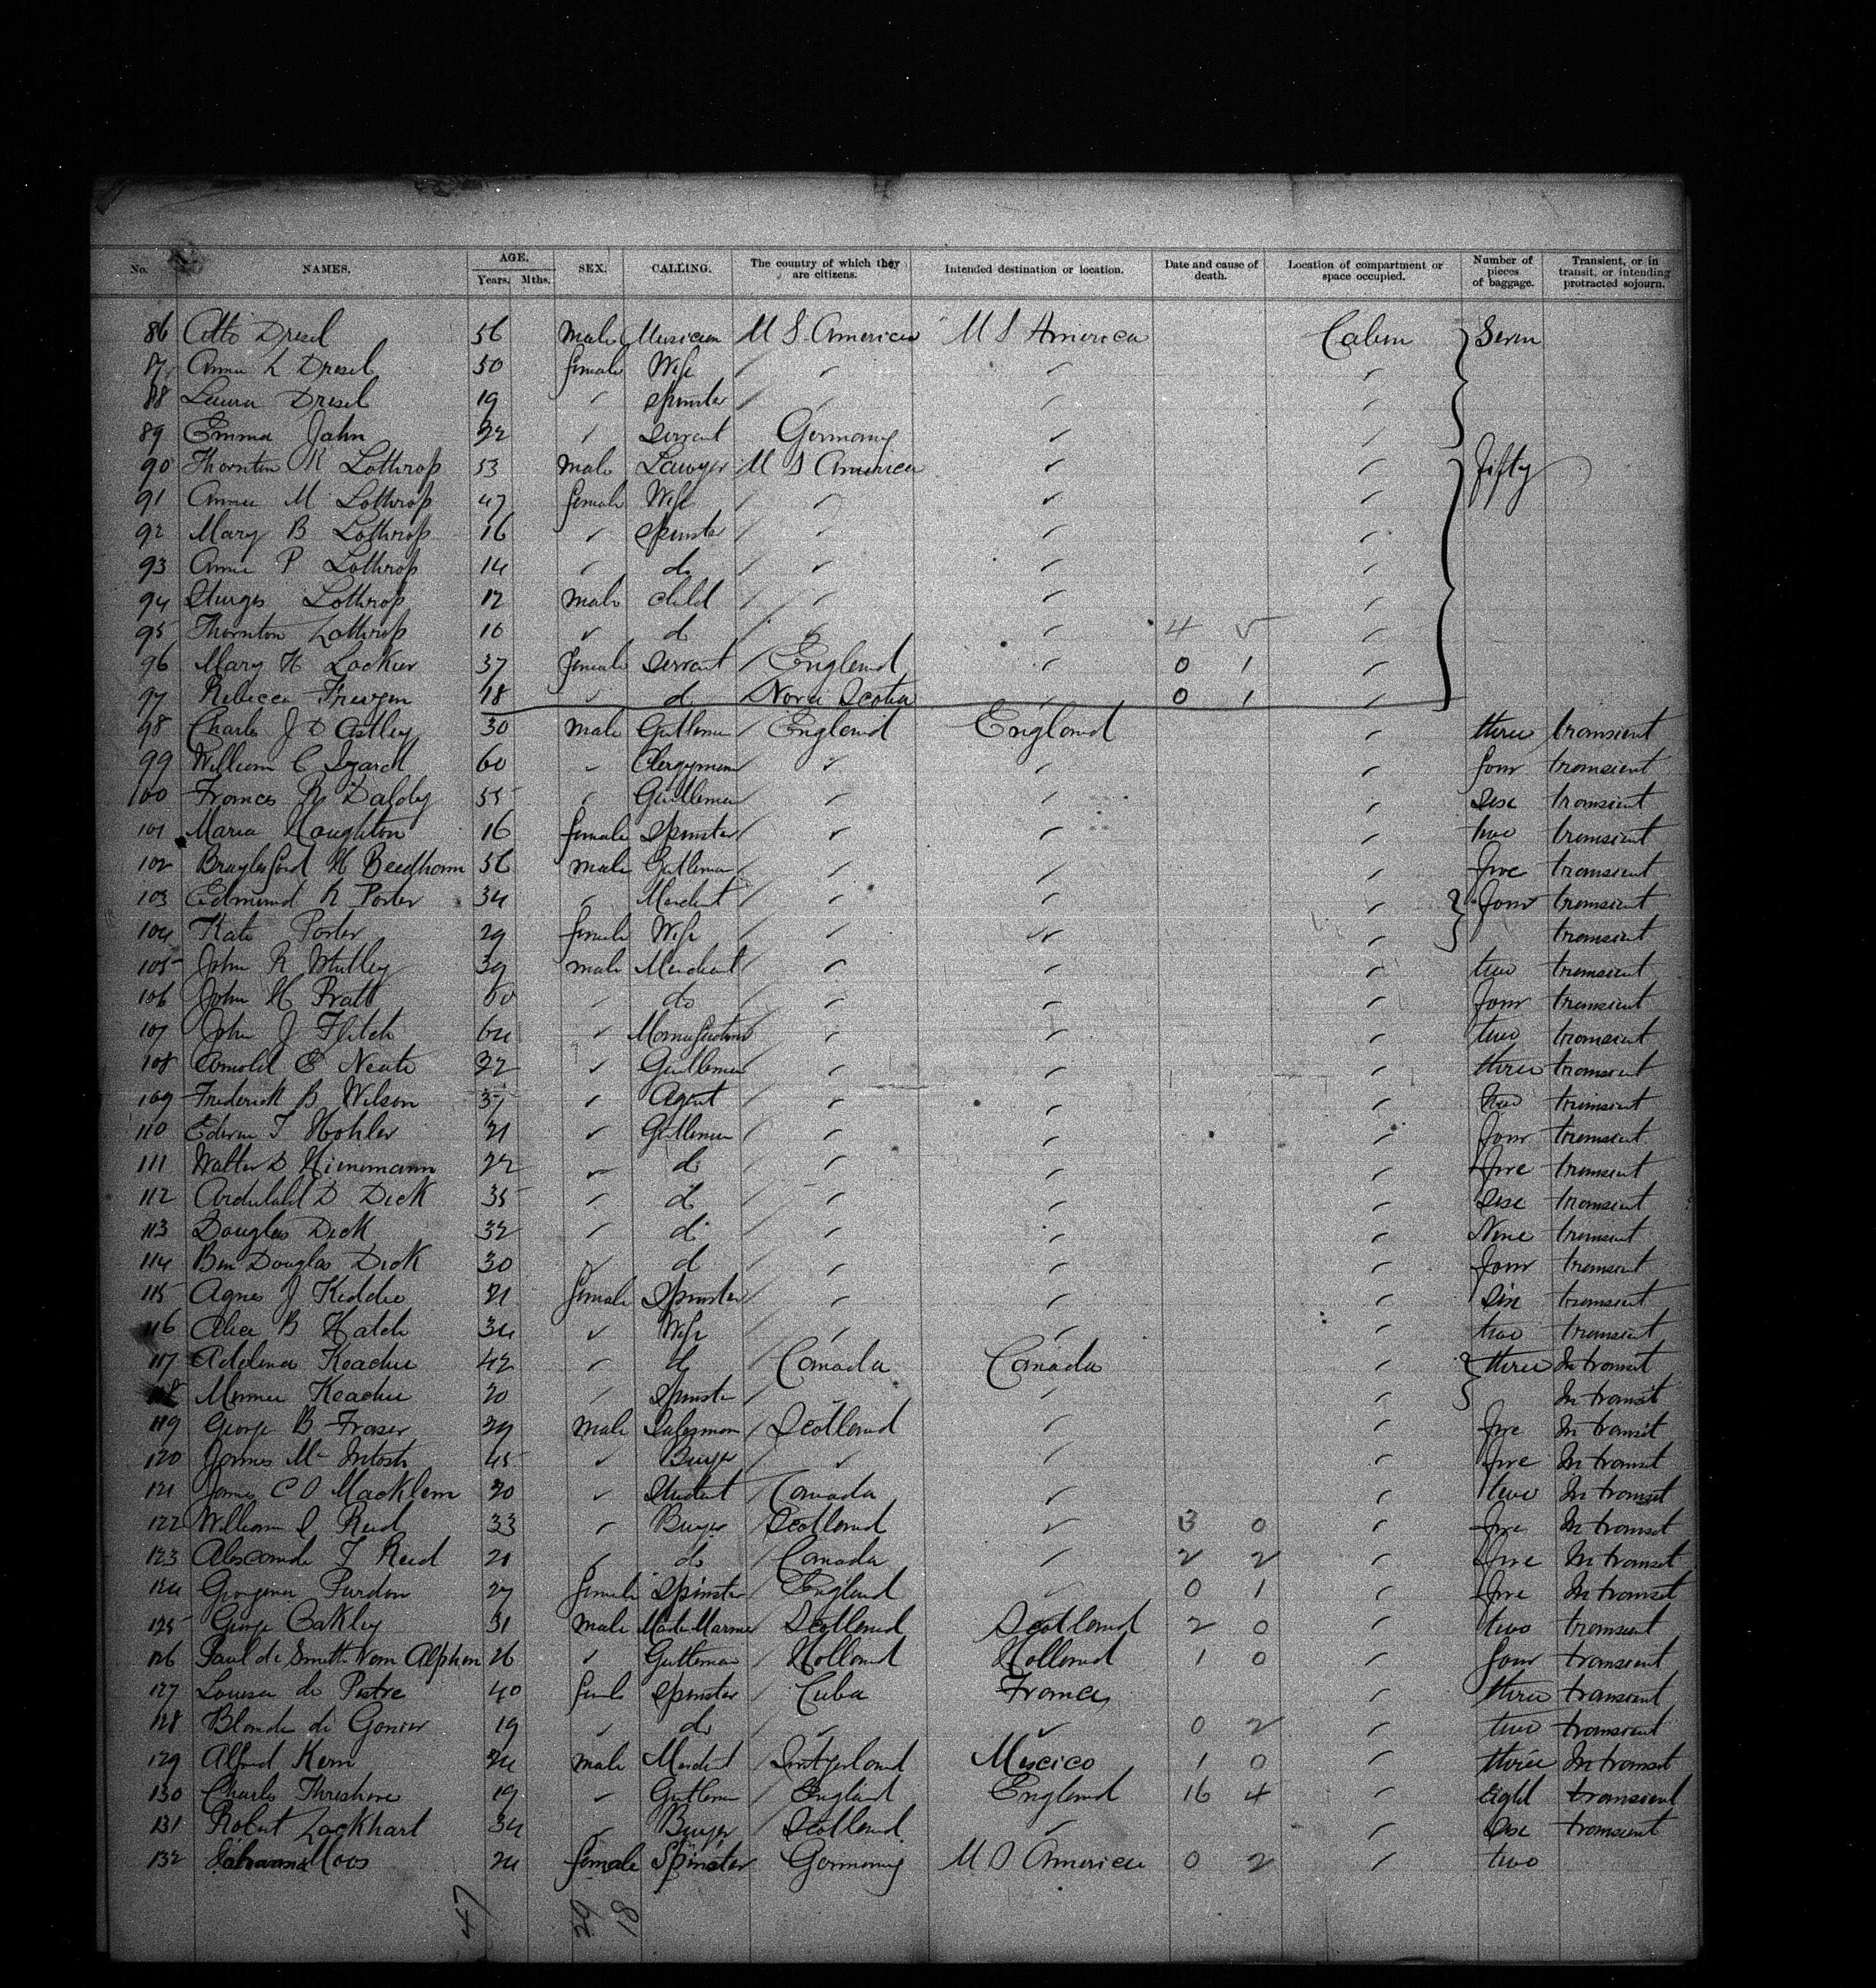 No. NAMES. AGE. Years. Mths. SEX. CALLING. The country of which they are citizens. Intended destination or location. Date and cause of death. Location of compartment or space occupied. Number of pieces of baggage. Transient, or in transit, or intending protracted sojourn.
86 Otto Dresel 56 Male Musician U S America U S America Cabin Seven
87 Annie L Dresel 50 female Wife
88 Laura Dresel 19 Spinster
89 Emma Jahn 22 Servant Germany
90 Thornton K Lothrop 53 Male Lawyer U S America fifty
91 Annie M Lothrop 47 female Wife
92 Mary B Lothrop 16 Spinster
93 Annie P Lothrop 14 do
94 Sturges Lothrop 12 Male child
95 Thornton Lothrop 10 d 4 5
96 Mary H Lockier 37 female Servant England 0 1
97 Rebecca 18 d Nova Scotia 0 1
98 Charles J D Astley 30 Male Gentleman England England three transient
99 William C Izard 60 Clergyman four transient
100 Frances Dalby 55 Gentleman Six transient
101 Maria Houghton 16 female Spinster two transient
102 Braylesford H Beedham 56 male Gentleman five transient
103 Edmund R Porter 34 Merchant four transient
104 Kate Porter 29 female Wife transient
105 John R Whitley 39 male Merchant two transient
106 John H Pratt 60 do four transient
107 John J Flitch 64 Manufacturer two transient
108 Arnold E Neate 22 Gentleman three transient
109 Frederick B Wilson 37 Agent two transient
110 Edwin T Hohler 21 Gentleman four transient
111 Walter D Hienemann 22 do five transient
112 Archibald D Dick 35 d Six transient
113 Douglas Dick 32 d Nine transient
114 Ben Douglas Dick 30 d four transient
115 Agnes J Keddie 21 female Spinster Six transient
116 Alice B Hatch 34 Wife two transient
117 Adelina Keachie 42 d Canada Canada three In transit
118 Minnie Keachie 20 Spinster In transit
119 George B Fraser 29 Male Salesman Scotland five In transit
120 James Mc Intosh 45 Buyer five In transit
121 James C O Macklem 20 Student Canada two In transit
122 William Reid 33 Buyer Scotland 3 0 five In transit
123 Alexander T Reid 21 do Canada 2 2 five In transit
124 Georgina Purdon 27 female Spinster England 0 1 five In transit
125 George Oakley 31 male Master Mariner Scotland Scotland 2 0 two transient
126 Paul de Smeth Von Alphen 26 Gentleman Holland Holland 1 0 four transient
127 Louisa de Pestre 40 female Spinster Cuba France three transient
128 Blonde de Gonier 19 do 0 2 two transient
129 Alfred Kern 24 male Merchant Switzerland Mexico 1 0 three In transit
130 Charles Threshire 19 Gentleman England England 16 4 eight transient
131 Robert Lockhart 34 Buyer Scotland One transient
132 Johanna Moos 24 female Spinster Germany U S America 0 2 two